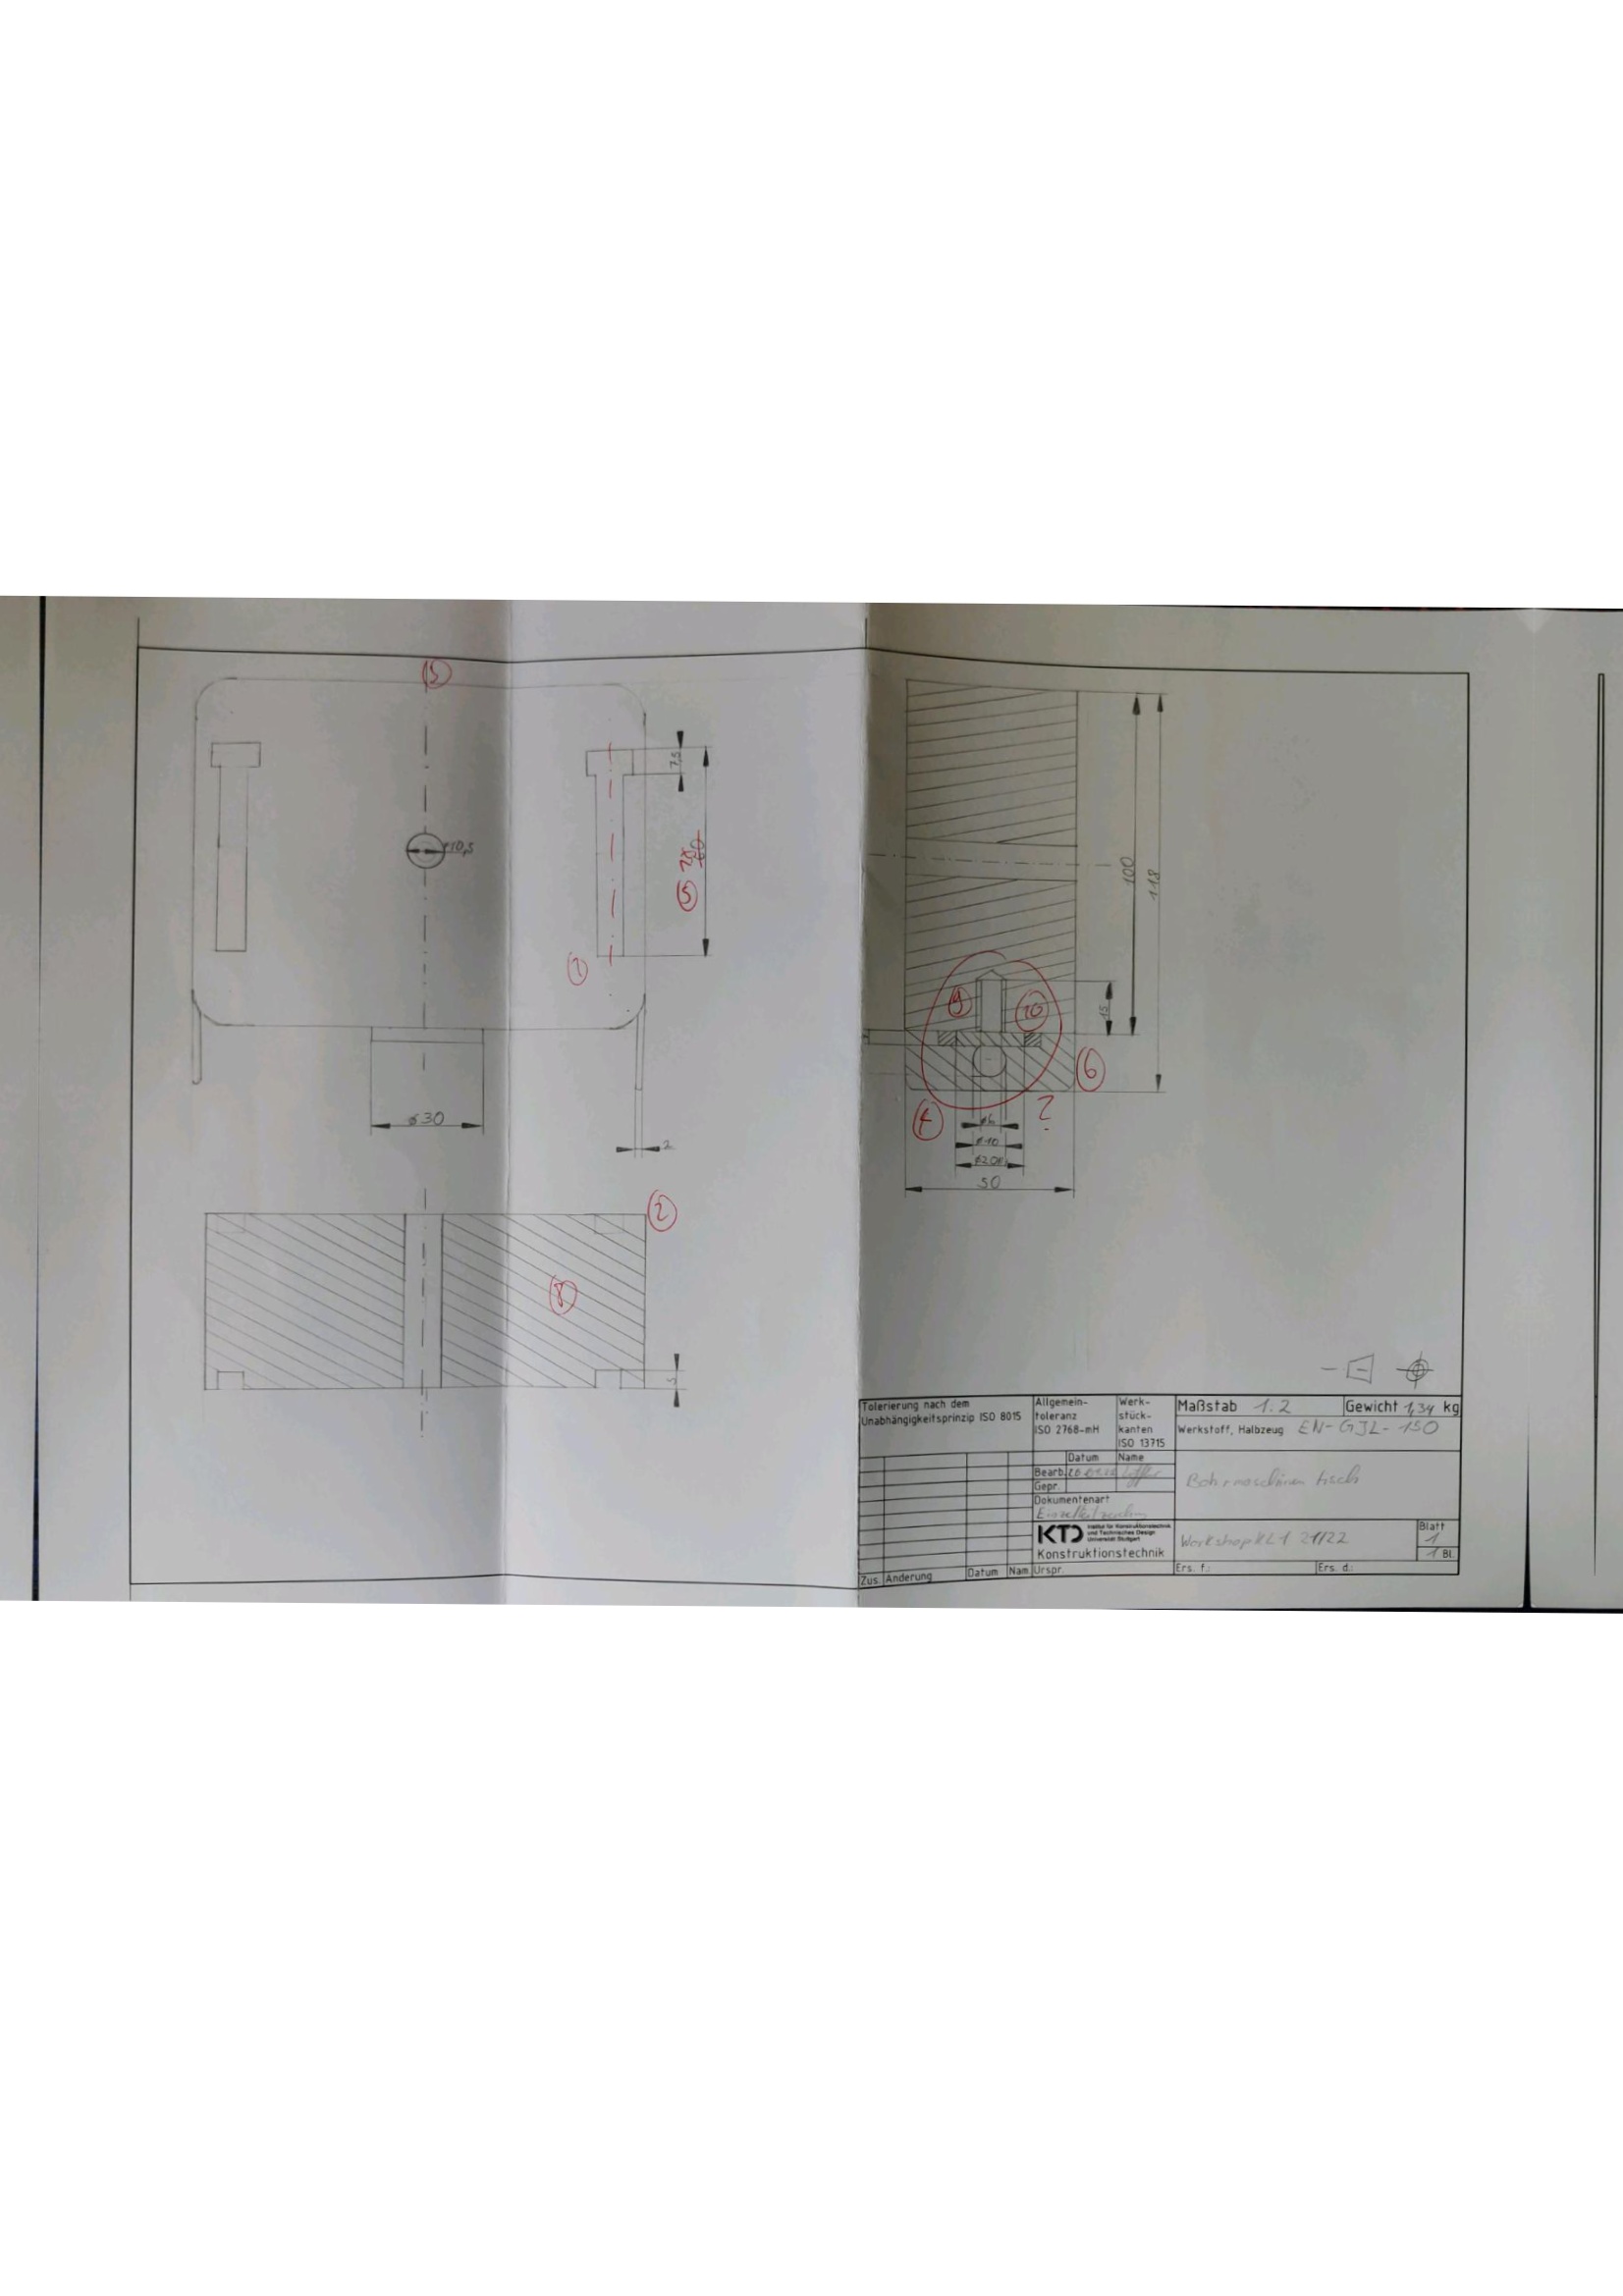 3
7,5
⌀10,5
5 2x 60
1
⌀30
2
2
8
5
100
118
9
10
15
6
4
?
⌀6
⌀10
⌀20
50
Tolerierung nach dem
Unabhängigkeitsprinzip ISO 8015
Allgemein-
toleranz
ISO 2768-mH
Werk-
stück-
kanten
ISO 13715
Maßstab 1:2
Gewicht 1,34 kg
Werkstoff, Halbzeug EN-GJL-150
Datum Name
Bearb.
Gepr.
Bohrmaschinentisch
Dokumentenart
KTD Institut für Konstruktionstechnik
und Technisches Design
Universität Stuttgart
Konstruktionstechnik
Workshop KL1 21/22
Blatt
1
1 Bl.
Zus. Änderung Datum Nam. Urspr. Ers. f.: Ers. d.: